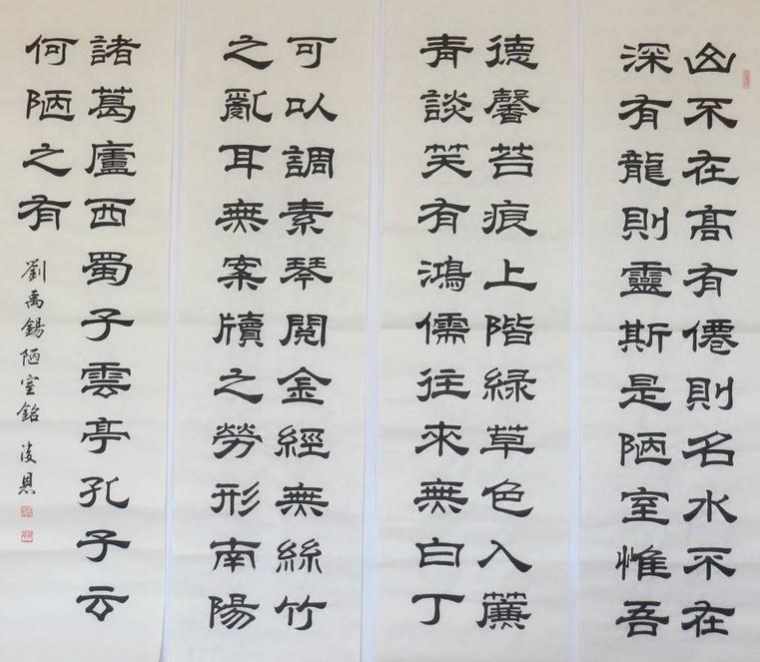 山不在髙有僊則名水不在
深有龍則靈斯是陋室惟吾
德馨苔痕上階緑草色入簾
青談笑有鴻儒往來無白丁
可以調素琴閱金經無絲竹
之亂耳無案牘之勞形南陽
諸葛廬西蜀子雲亭孔子云
何陋之有
劉禹錫陋室銘